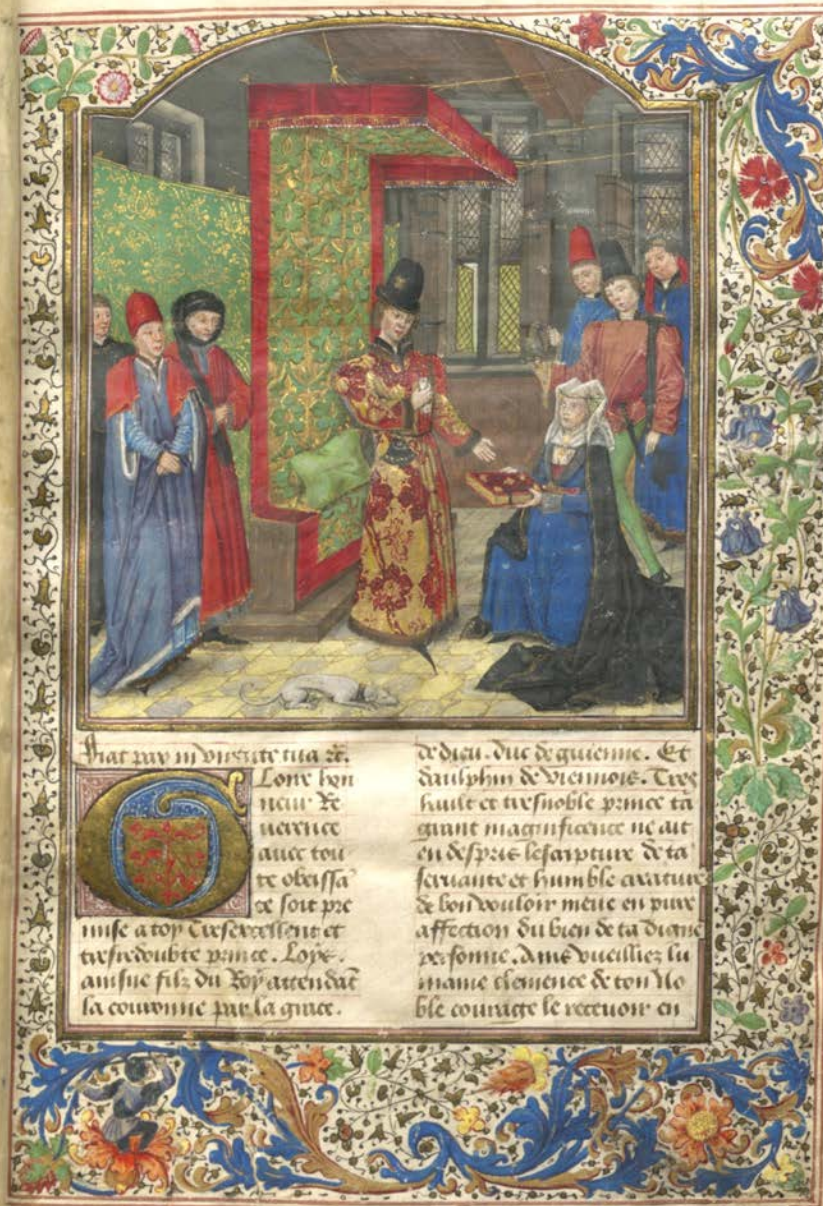 Fiat pax in virtute tua &c.
Gloire hon
neur Re
uerence
auec tou
te obeissa
ce soit pre
mise a toy Tresexcellent et
tresredoubte prince. Loÿs.
ainsne filz du Roÿ attendāt
la couronne par la grace.
de dieu. duc de guienne. Et
daulphin de Viennois. Tres
hault et tresnoble prince ta
grant magnificence ne ait
en despris lescripture de ta
seruante et humble creature
de bon vouloir meue en pure
affection du bien de ta digne
personne. Ains vueilliez lu
maine clemence de ton No
ble courage le receuoir en